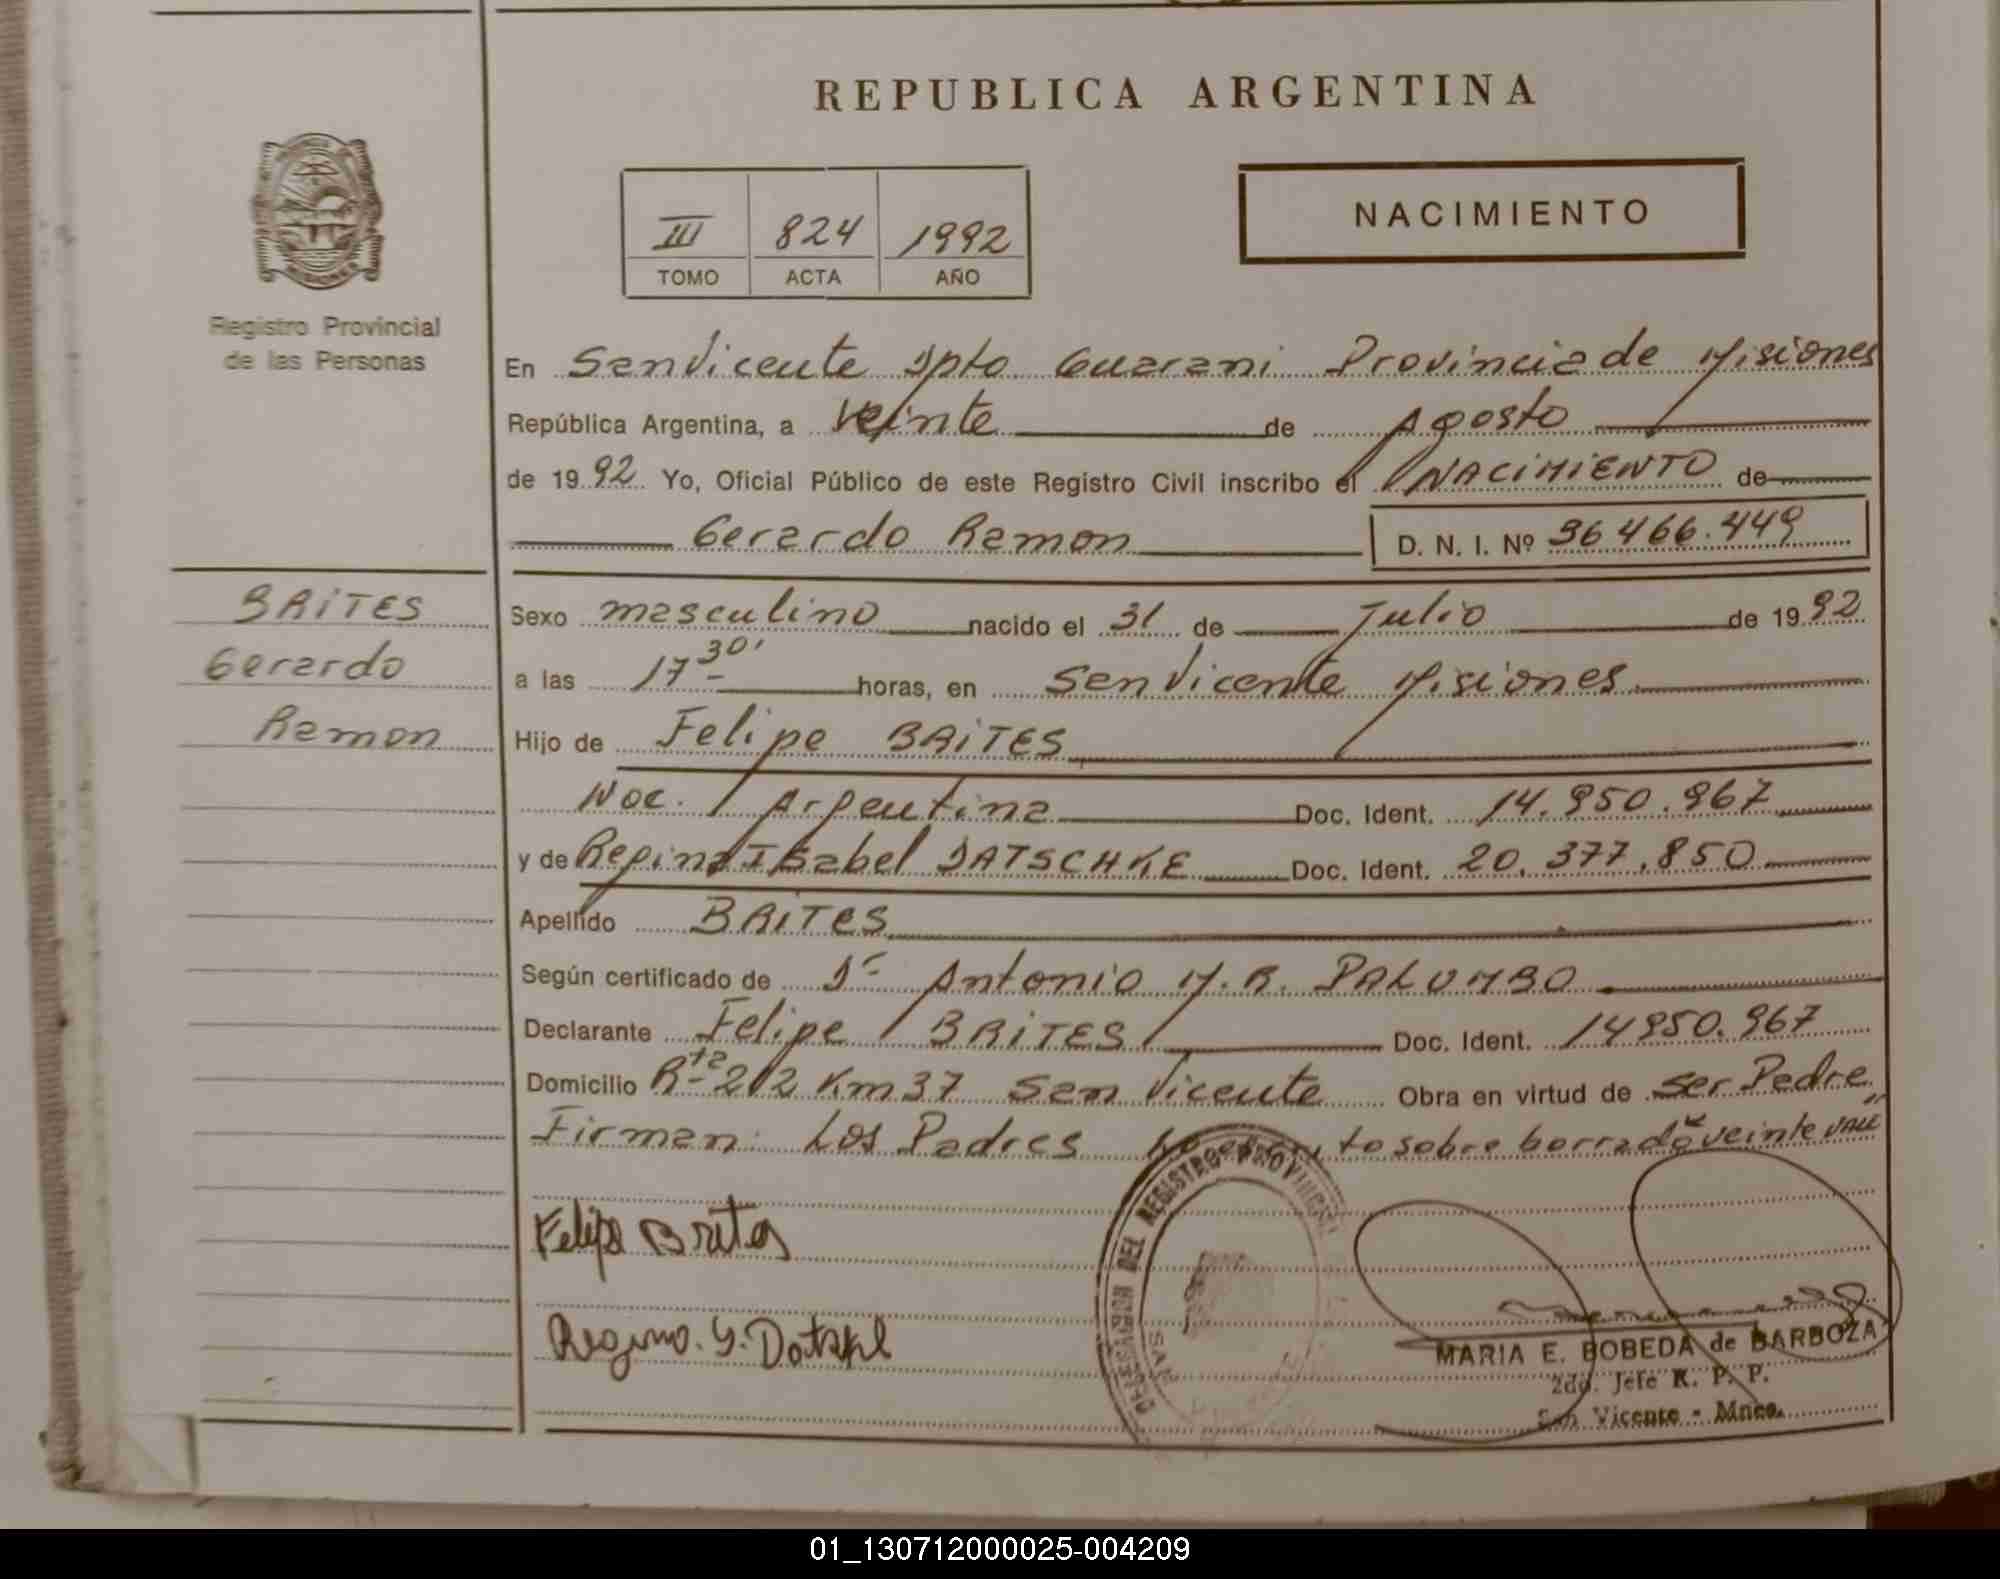 REPUBLICA ARGENTINA
NACIMIENTO
III 824 1992
TOMO ACTA AÑO
Registro Provincial
de las Personas
En San Vicente Dpto Guarani Provincia de Misiones
República Argentina, a veinte de Agosto
de 1992. Yo, Oficial Público de este Registro Civil inscribo el NACIMIENTO de
Gerardo Ramon D. N. I. Nº 36466.449
BRITES
Gerardo
Ramon
Sexo masculino nacido el 31 de Julio de 1992
a las 17 30' horas, en San Vicente Misiones
Hijo de Felipe BRITES
Nac. Argentina Doc. Ident. 14.950.967
y de Regina Isabel DATSCHKE Doc. Ident. 20.377.850
Apellido BRITES
Según certificado de Dr Antonio M. R. PALUMBO
Declarante Felipe BRITES Doc. Ident. 14950.967
Domicilio Rta 212 Km 37 San Vicente Obra en virtud de ser Padre
Firman: Los Padres to sobre borrado "veinte" VALE
Felipe Brites
DELEGACION DEL REGISTRO PROVINCIAL
SAN
MARIA E. BOBEDA de BARBOZA
2do. Jefe R. P. P.
San Vicente - Mnes.
01_130712000025-004209